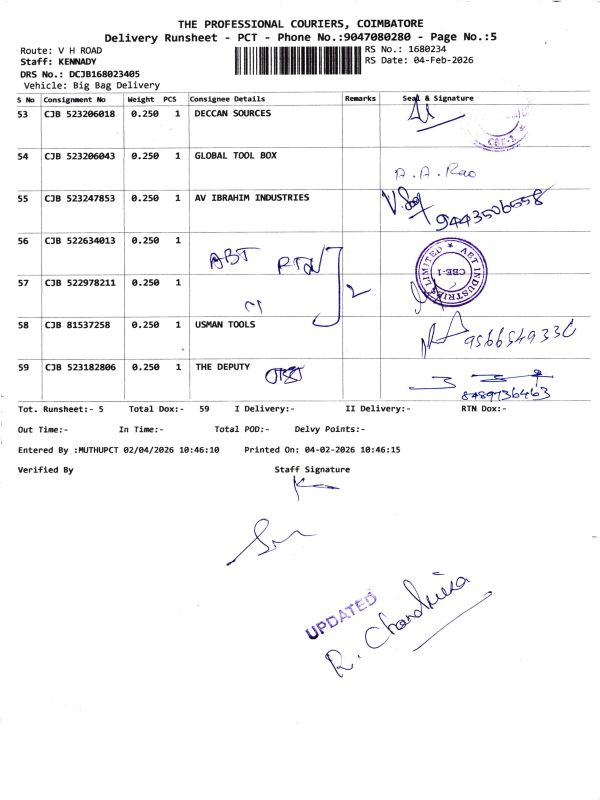 THE PROFESSIONAL COURIERS, COIMBATORE
Delivery Runsheet - PCT - Phone No.:9047080280 - Page No.:5
Route: V H ROAD
RS No.: 1680234
Staff: KENNADY
RS Date: 04-Feb-2026
DRS No.: DCJB168023405
Vehicle: Big Bag Delivery
S No Consignment No Weight PCS Consignee Details Remarks Seal & Signature
53 CJB 523206018 0.250 1 DECCAN SOURCES
CBE-2
54 CJB 523206043 0.250 1 GLOBAL TOOL BOX
A.A.Rao
55 CJB 523247853 0.250 1 AV IBRAHIM INDUSTRIES
9443506558
56 CJB 522634013 0.250 1
ABT
ABT INDUSTRIES LIMITED
CBE-1
57 CJB 522978211 0.250 1
2
58 CJB 81537258 0.250 1 USMAN TOOLS
9566549330
59 CJB 523182806 0.250 1 THE DEPUTY
8489736463
Tot. Runsheet:- 5 Total Dox:- 59 I Delivery:- II Delivery:- RTN Dox:-
Out Time:- In Time:- Total POD:- Delvy Points:-
Entered By :MUTHUPCT 02/04/2026 10:46:10 Printed On: 04-02-2026 10:46:15
Verified By Staff Signature
UPDATED
R. Chandrika